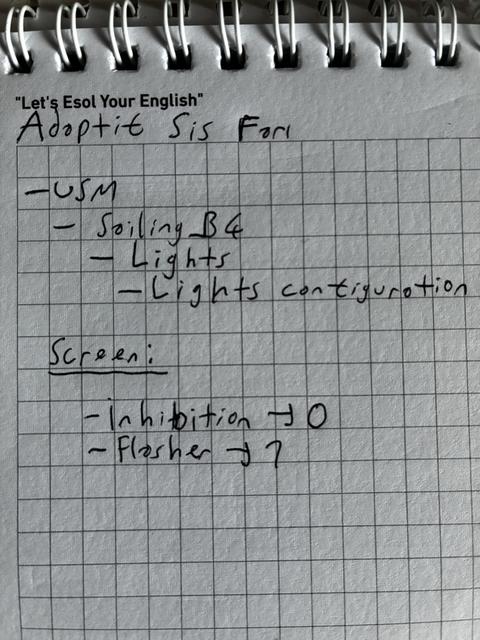 "Let's Esol Your English"
Adoptit Sis Fort
- USM
- Soiling_B4
- Lights
- Lights contiguration
Screen:
- Inhibition → 0
- Flosher → 7